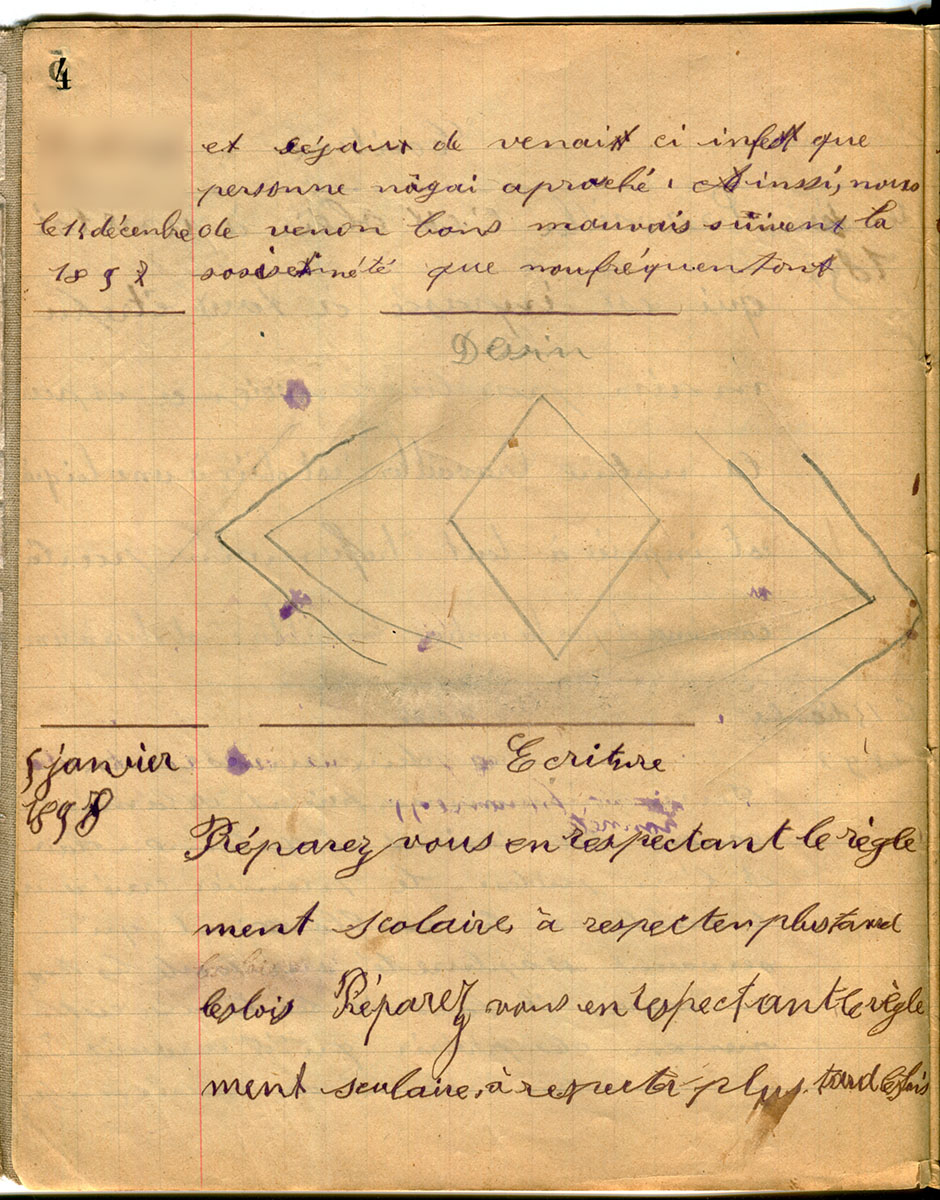 4
et séjaux de venait ci infest que
personne nàgai aproché. Ainssi, nous
le 14 décenbre
1897
de venon bons mauvais suivent la
sosisetnnété que noufréquentont
Desin
5 janvier
1898
Ecriture
Préparez vous en respectant le règle
ment scolaire, à respecter plus tard
les lois Préparez vous en respectant le règle
ment scolaire, à respecter plus tard les lois